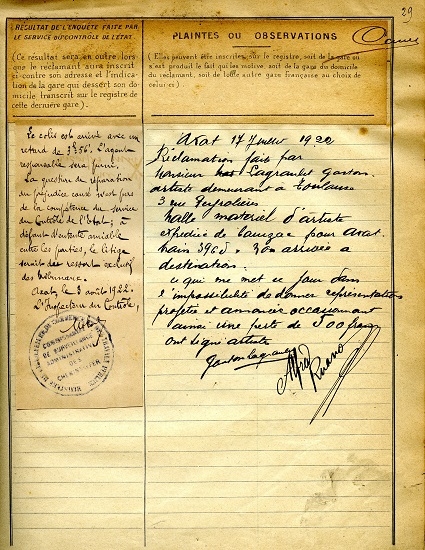 29
RÉSULTAT DE L'ENQUÊTE FAITE PAR
LE SERVICE DU CONTRÔLE DE L'ÉTAT.
(Ce résultat sera en outre, lors
que le réclamant aura inscrit
ici contre son adresse et l'indica-
tion de la gare qui dessert son do-
micile transcrit sur le registre de
cette dernière gare).
PLAINTES OU OBSERVATIONS
(Elles peuvent être inscrites, sur le registre, soit de la gare où
s'est produit le fait qui les motive, soit de la gare du domicile
du réclamant, soit de toute autre gare française au choix de
celui-ci)
Le colis est arrivé avec un
retard de 3h56'. L'agent
responsable sera puni.
La question de réparation
du préjudice causé n'est pas
de la compétence du service
du Contrôle de l'Etat; à
défaut d'entente amiable
entre les parties, le litige
serait du ressort exclusif
des tribunaux.
Axat, le 3 août 1922.
L'Inspecteur du Contrôle,
COMMISSAIRE
DE SURVEILLANCE
ADMINISTRATIVE
DES
CHEMINS DE FER
Axat 17 Juillet 1922
Réclamation fait par
Monsieur Lagraulet Gaston
artiste demeurant à Toulouse
3 rue
malle matériel d'artiste
expédiée de pour Axat
arrivée à
destination.
ce qui me met ce jour dans
l'impossibilité de donner représentations
projetés et annoncer occasionnant
ainsi une perte de 300 francs
ont signé artiste
Gaston Lagraulet
Alfred